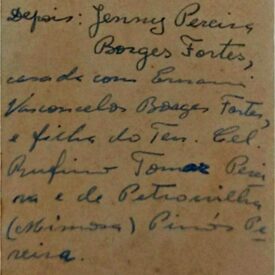 Depois: Jenny Pereira
Borges Fortes,
casada com Ernani
Vasconcelos Borges Fortes,
e filha do Ten. Cel.
Rufino Tomaz Perei
ra e de Petronilha
(Mimosa) Pinós Pe-
reira.